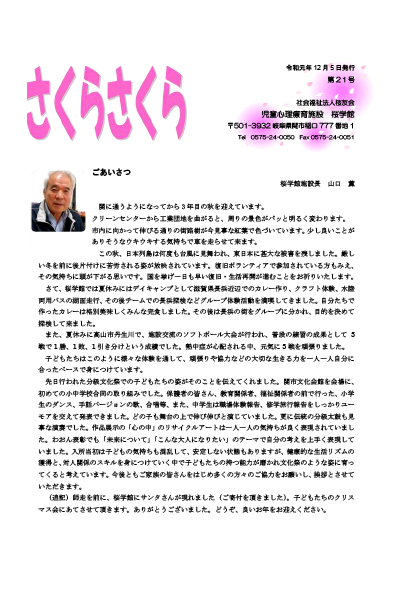 令和元年12月5日発行
さくらさくら
第21号
社会福祉法人桜友会
児童心理療育施設 桜学館
〒501-3932 岐阜県関市稲口777番地1
Tel 0575-24-0050 Fax 0575-24-0051
ごあいさつ
桜学館施設長 山口 薫
関に通うようになってから3年目の秋を迎えています。
クリーンセンターから工業団地を曲がると、周りの景色がパッと明るく変わります。
市内に向かって伸びる通りの街路樹が今見事な紅葉で色づいています。少し良いことが
ありそうなウキウキする気持ちで車を走らせて来ます。
この秋、日本列島は何度も台風に見舞われ、東日本に甚大な被害を残しました。厳し
い冬を前に後片付けに苦労される姿が放映されています。復旧ボランティアで参加されている方もみえ、
その気持ちに頭が下がる思いです。国を挙げ一日も早い復旧・生活再開が進むことをお祈りいたします。
さて、桜学館では夏休みにはデイキャンプとして滋賀県長浜近辺でのカレー作り、クラフト体験、水陸
両用バスの湖面走行、その後チームでの長浜探検などグループ体験活動を満喫してきました。自分たちで
作ったカレーは格別美味しくみんな完食しました。その後は長浜の街をグループに分かれ、目的を決めて
探検して来ました。
また、夏休みに高山市丹生川で、施設交流のソフトボール大会が行われ、普段の練習の成果として3
戦で1勝、1敗、1引き分けという成績でした。熱中症が心配される中、元気に3戦を頑張りました。
子どもたちはこのように様々な体験を通して、頑張りや協力などの大切な生きる力を一人一人自分に
合ったペースで身につけています。
先日行われた分級文化祭での子どもたちの姿がそのことを伝えてくれました。関市文化会館を会場に、
初めての小中学校合同の取り組みでした。保護者の皆さん、教育関係者、福祉関係者の前で行った、小学
生のダンス、手話バージョンの歌、合唱等、また、中学生は職場体験報告、修学旅行報告をしっかりユー
モアを交えて発表できました。どの子も舞台の上で伸び伸びと演じていました。更に伝統の分級太鼓も見
事な演奏でした。作品展示の「心の中」のリサイクルアートは一人一人の気持ちが良く表現されていまし
た。わおん表彰でも「未来について」「こんな大人になりたい」のテーマで自分の考えを上手く表現して
いました。入所当初は子どもの気持ちも混乱して、安定しない状態もありますが、健康的な生活リズムの
獲得と、対人関係のスキルを身につけていく中で子どもたちの持つ能力が磨かれ文化祭のような姿に育っ
てくると考えています。今後ともご家族の皆さんをはじめ多くの方々のご協力をお願いし、挨拶とさせて
いただきます。
(追記)師走を前に、桜学館にサンタさんが現れました(ご寄付を頂きました)。子どもたちのクリス
マス会にあてさせて頂きます。ありがとうございました。どうぞ、良いお年をお迎えください。